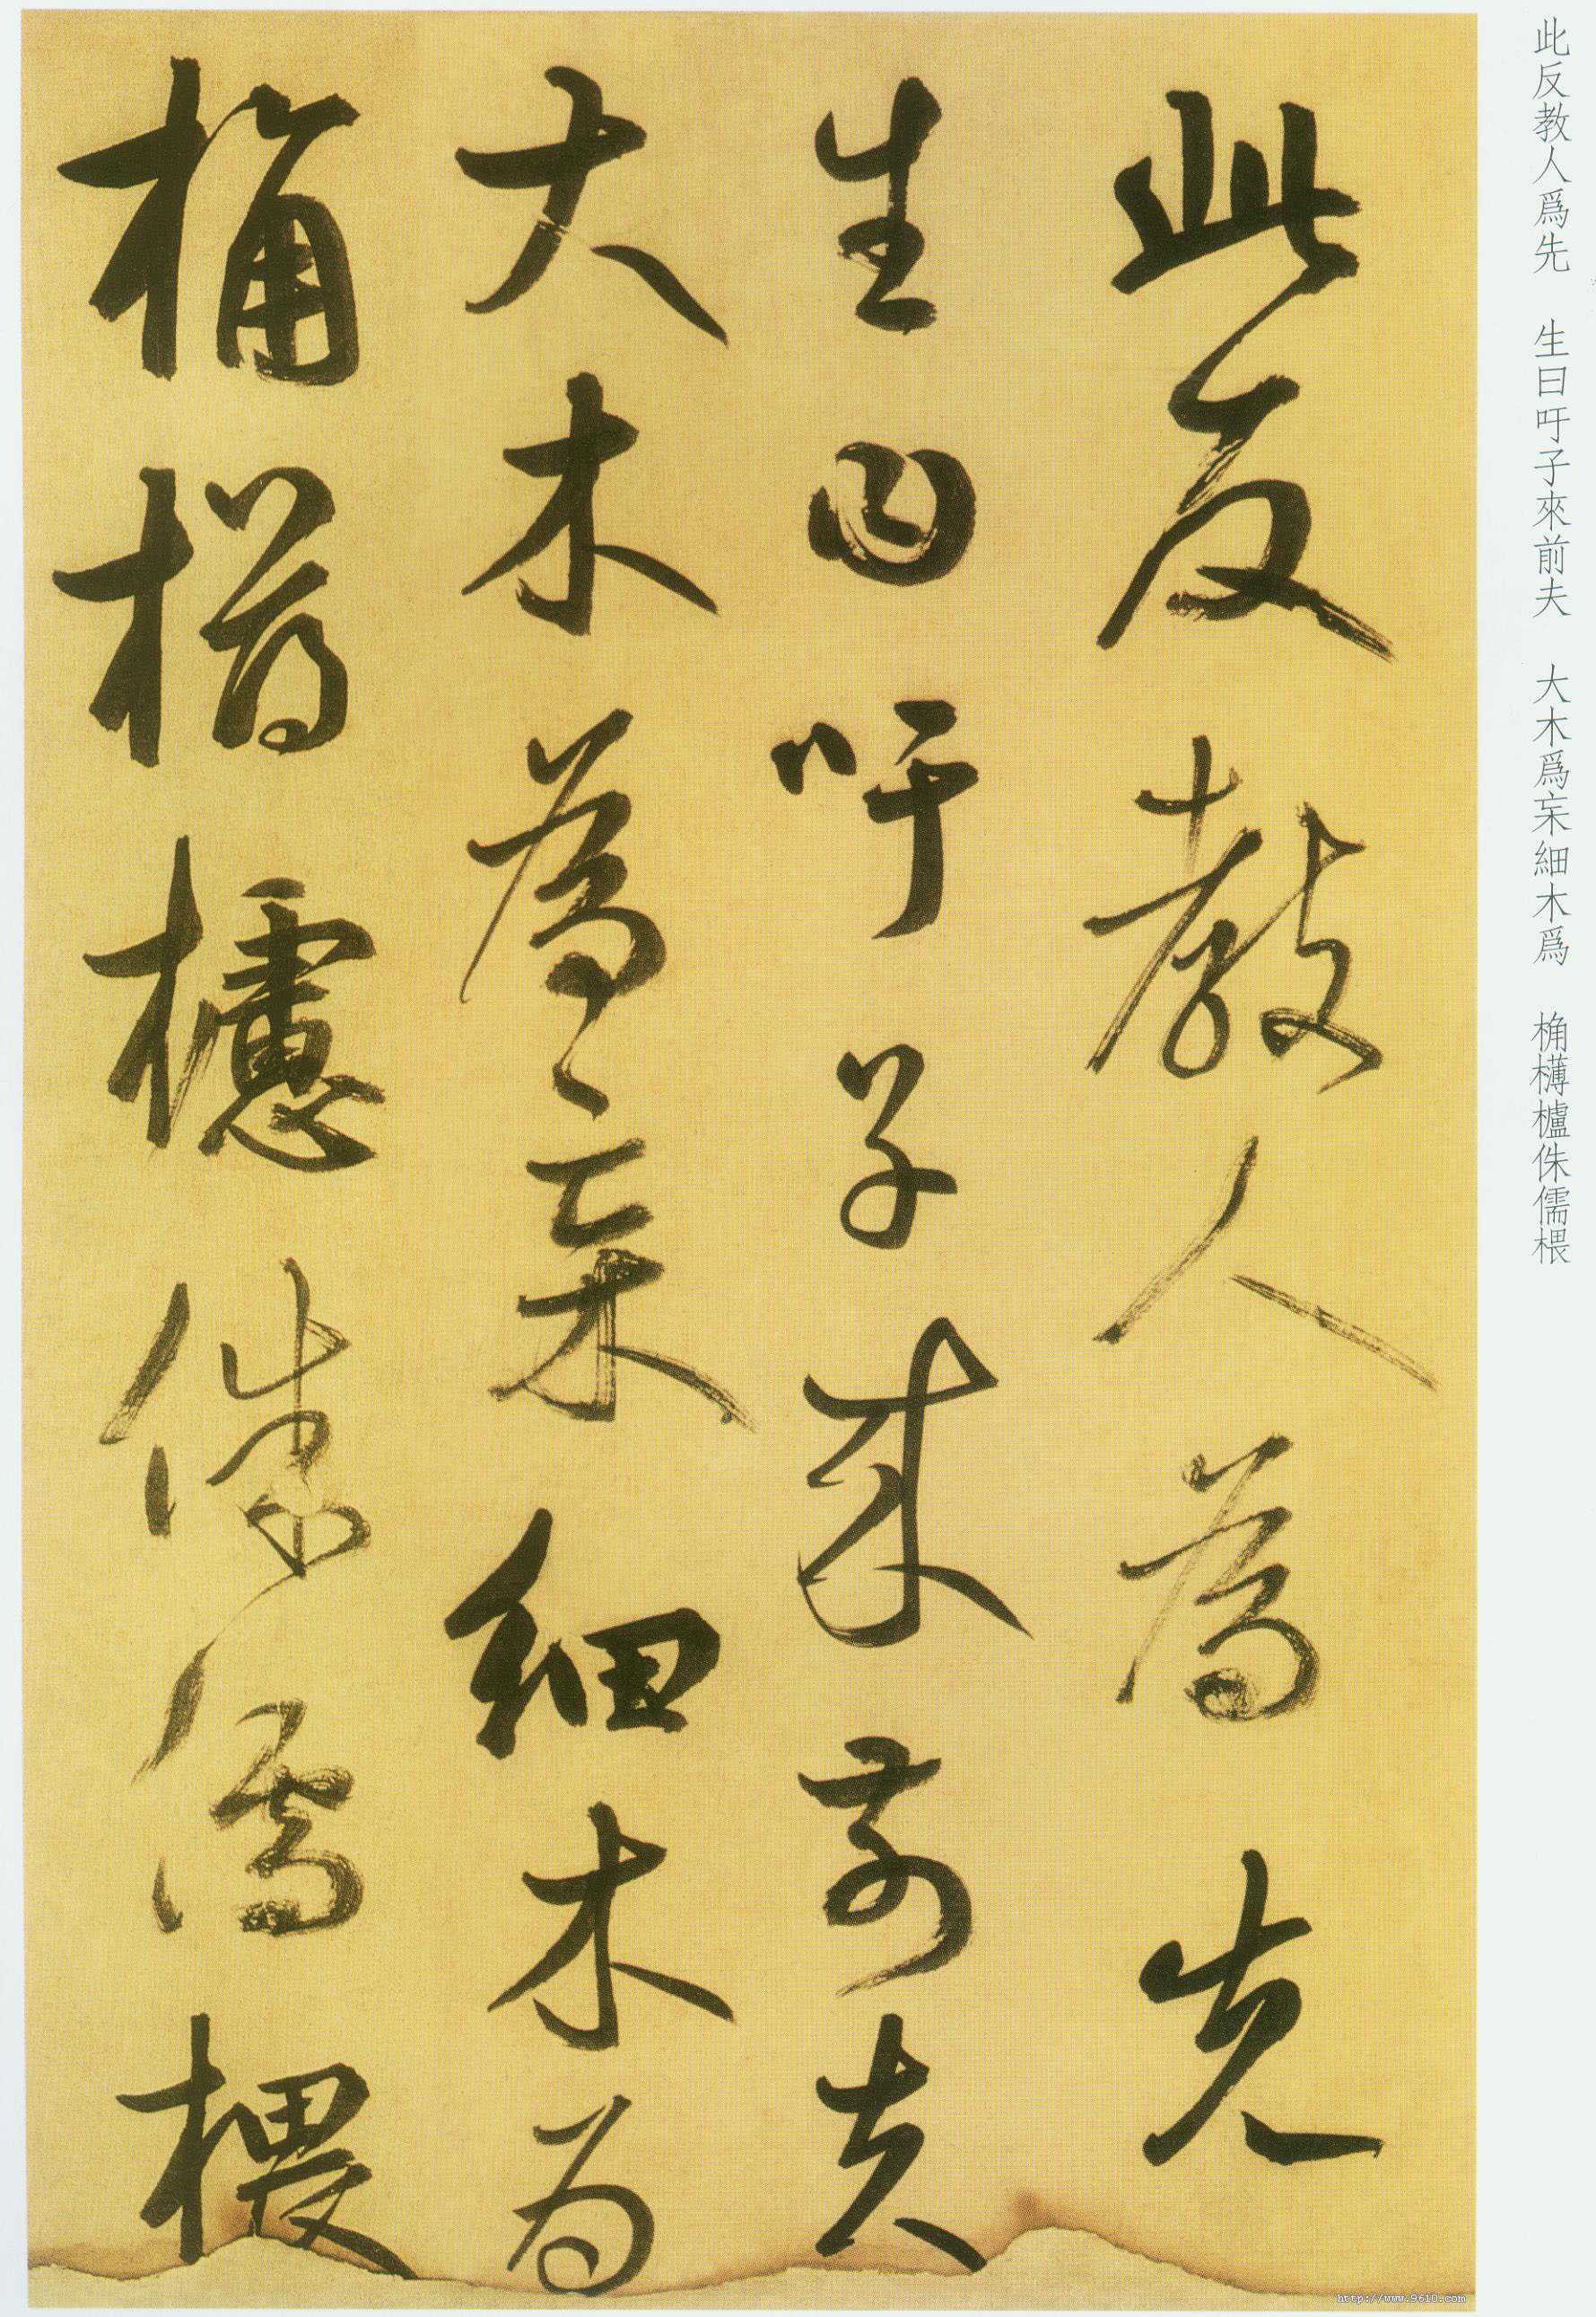 此反教人爲先　生曰吁子來前夫　大木爲杗細木爲　桷欂櫨侏儒椳
此反教人為先
生曰吁子来前夫
大木為杗細木为
桷欂櫨侏儒椳
http://www.9610.com